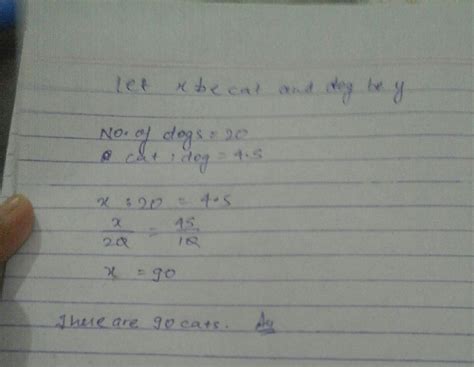 Let x be cat and dog be y
No. of dogs = 20
cat : dog = 4.5
x : 20 = 4.5
x/20 = 45/10
x = 90
There are 90 cats. Ans